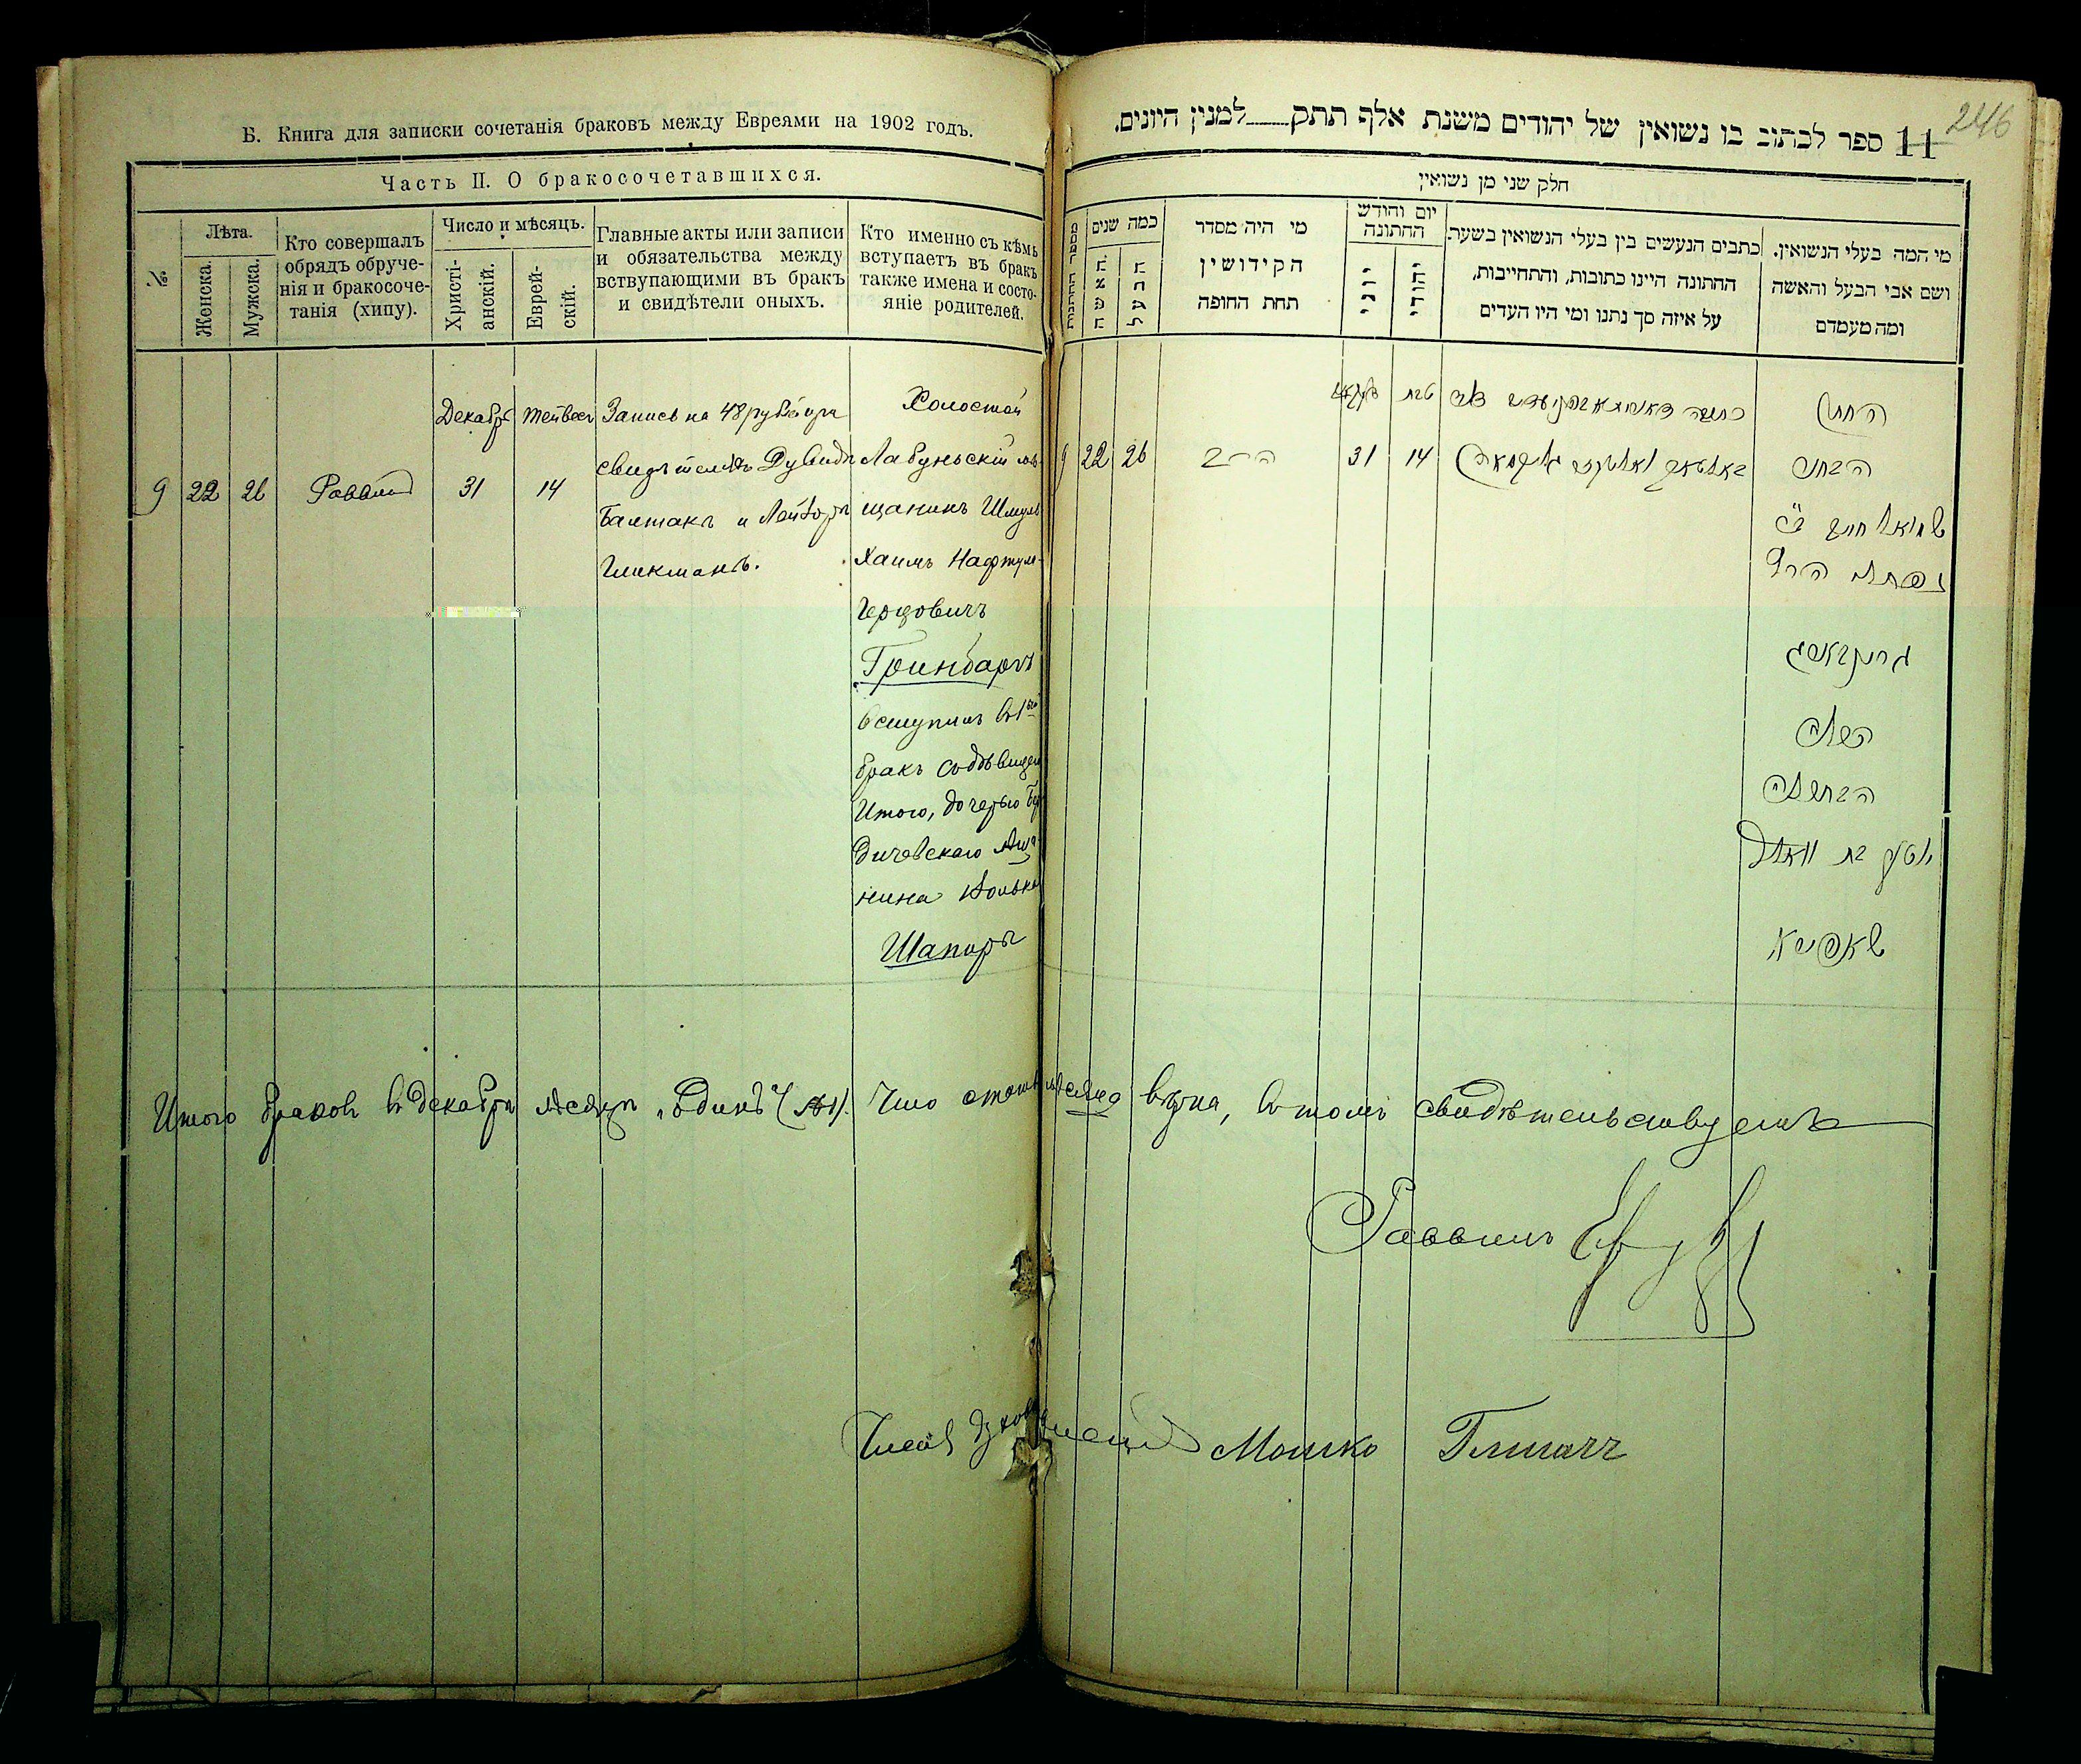 Б. Книга для записки сочетанія браковъ между Евреями на 1902 годъ.
Часть II. О бракосочетавшихся.
№
Лѣта.
Женска.
Мужска.
Кто совершалъ
обрядъ обруче-
нія и бракосоче-
танія (хипу).
Число и мѣсяцъ.
Христі-
анскій.
Еврей-
скій.
Главные акты или записи
и обязательства между
вступающими въ бракъ
и свидѣтели оныхъ.
Кто именно съ кѣмъ
вступаетъ въ бракъ
также имена и состо-
яніе родителей.
9
22
26
Раввинъ
Декабрь
31
Тейвесъ
14
Запись на 48 руб
свидѣтели Дувидъ
и Лейзоръ
Гликманъ.
Холостой
Лабуньскій мѣ-
щанинъ Шмуль
Хаимъ Нафтули-
Герцовичъ
Гринбаргъ
вступилъ въ 1
бракъ съ дѣвицею
дочерью Бер-
дичевскаго мѣща-
нина Волька
Шапиры
11 ספר לכתוב בו נשואין של יהודים משנת אלף תתק למנין היונים.
246
חלק שני מן נשואין
מספר החתונות
כמה שנים
האשה
הבעל
מי היה מסדר
הקידושין
תחת החופה
יום וחודש
החתונה
יוני
יהודי
כתבים הנעשים בין בעלי הנשואין בשעת
החתונה היינו כתובות, והתחייבות,
על איזה סך נתנו ומי היו העדים
מי המה בעלי הנשואין.
ושם אבי הבעל והאשה
ומה מעמדם
9
22
26
הרב
31
טבת
14
החתן
הבחור
שמואל חיים ב"ר
נפתלי הרץ
גרינבארג
הכלה
הבתולה
בת וואלף
שאפירא
Итого браковъ въ Декабрѣ мѣсяцѣ „одинъ“ (№1). Что статья сія вѣрна, въ томъ свидѣтельствуемъ
Раввинъ
Членъ духовн. Мошко